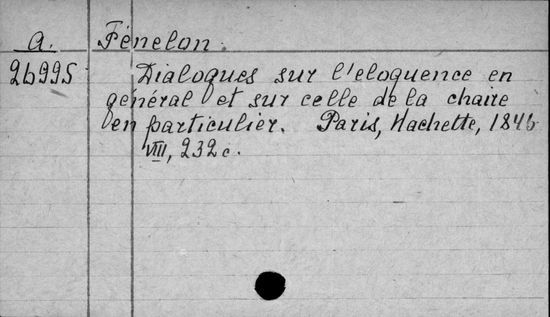 A. Fénelon.
26995 Dialogues sur l'eloquence en
général et sur celle de la chaire
en particulier. Paris, Hachette, 1846
VIII, 232 c.